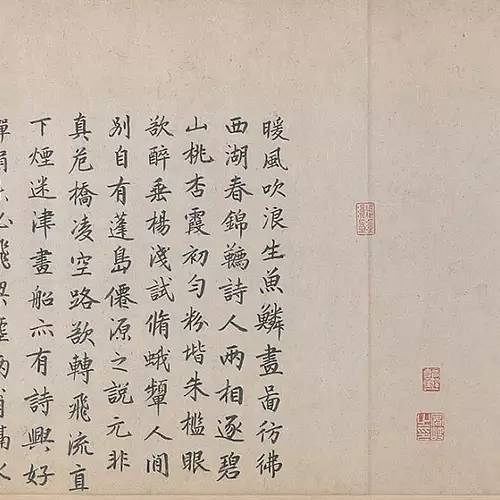 暖風吹浪生魚鱗畫啚彷彿
西湖春錦韉詩人兩相逐碧
山桃杏霞初勻粉堦朱檻眼
欲醉垂楊淺試脩蛾顰人間
別自有蓬島僊源之說元非
真危橋凌空路欲轉飛流直
下煙迷津畫船亦有詩興好